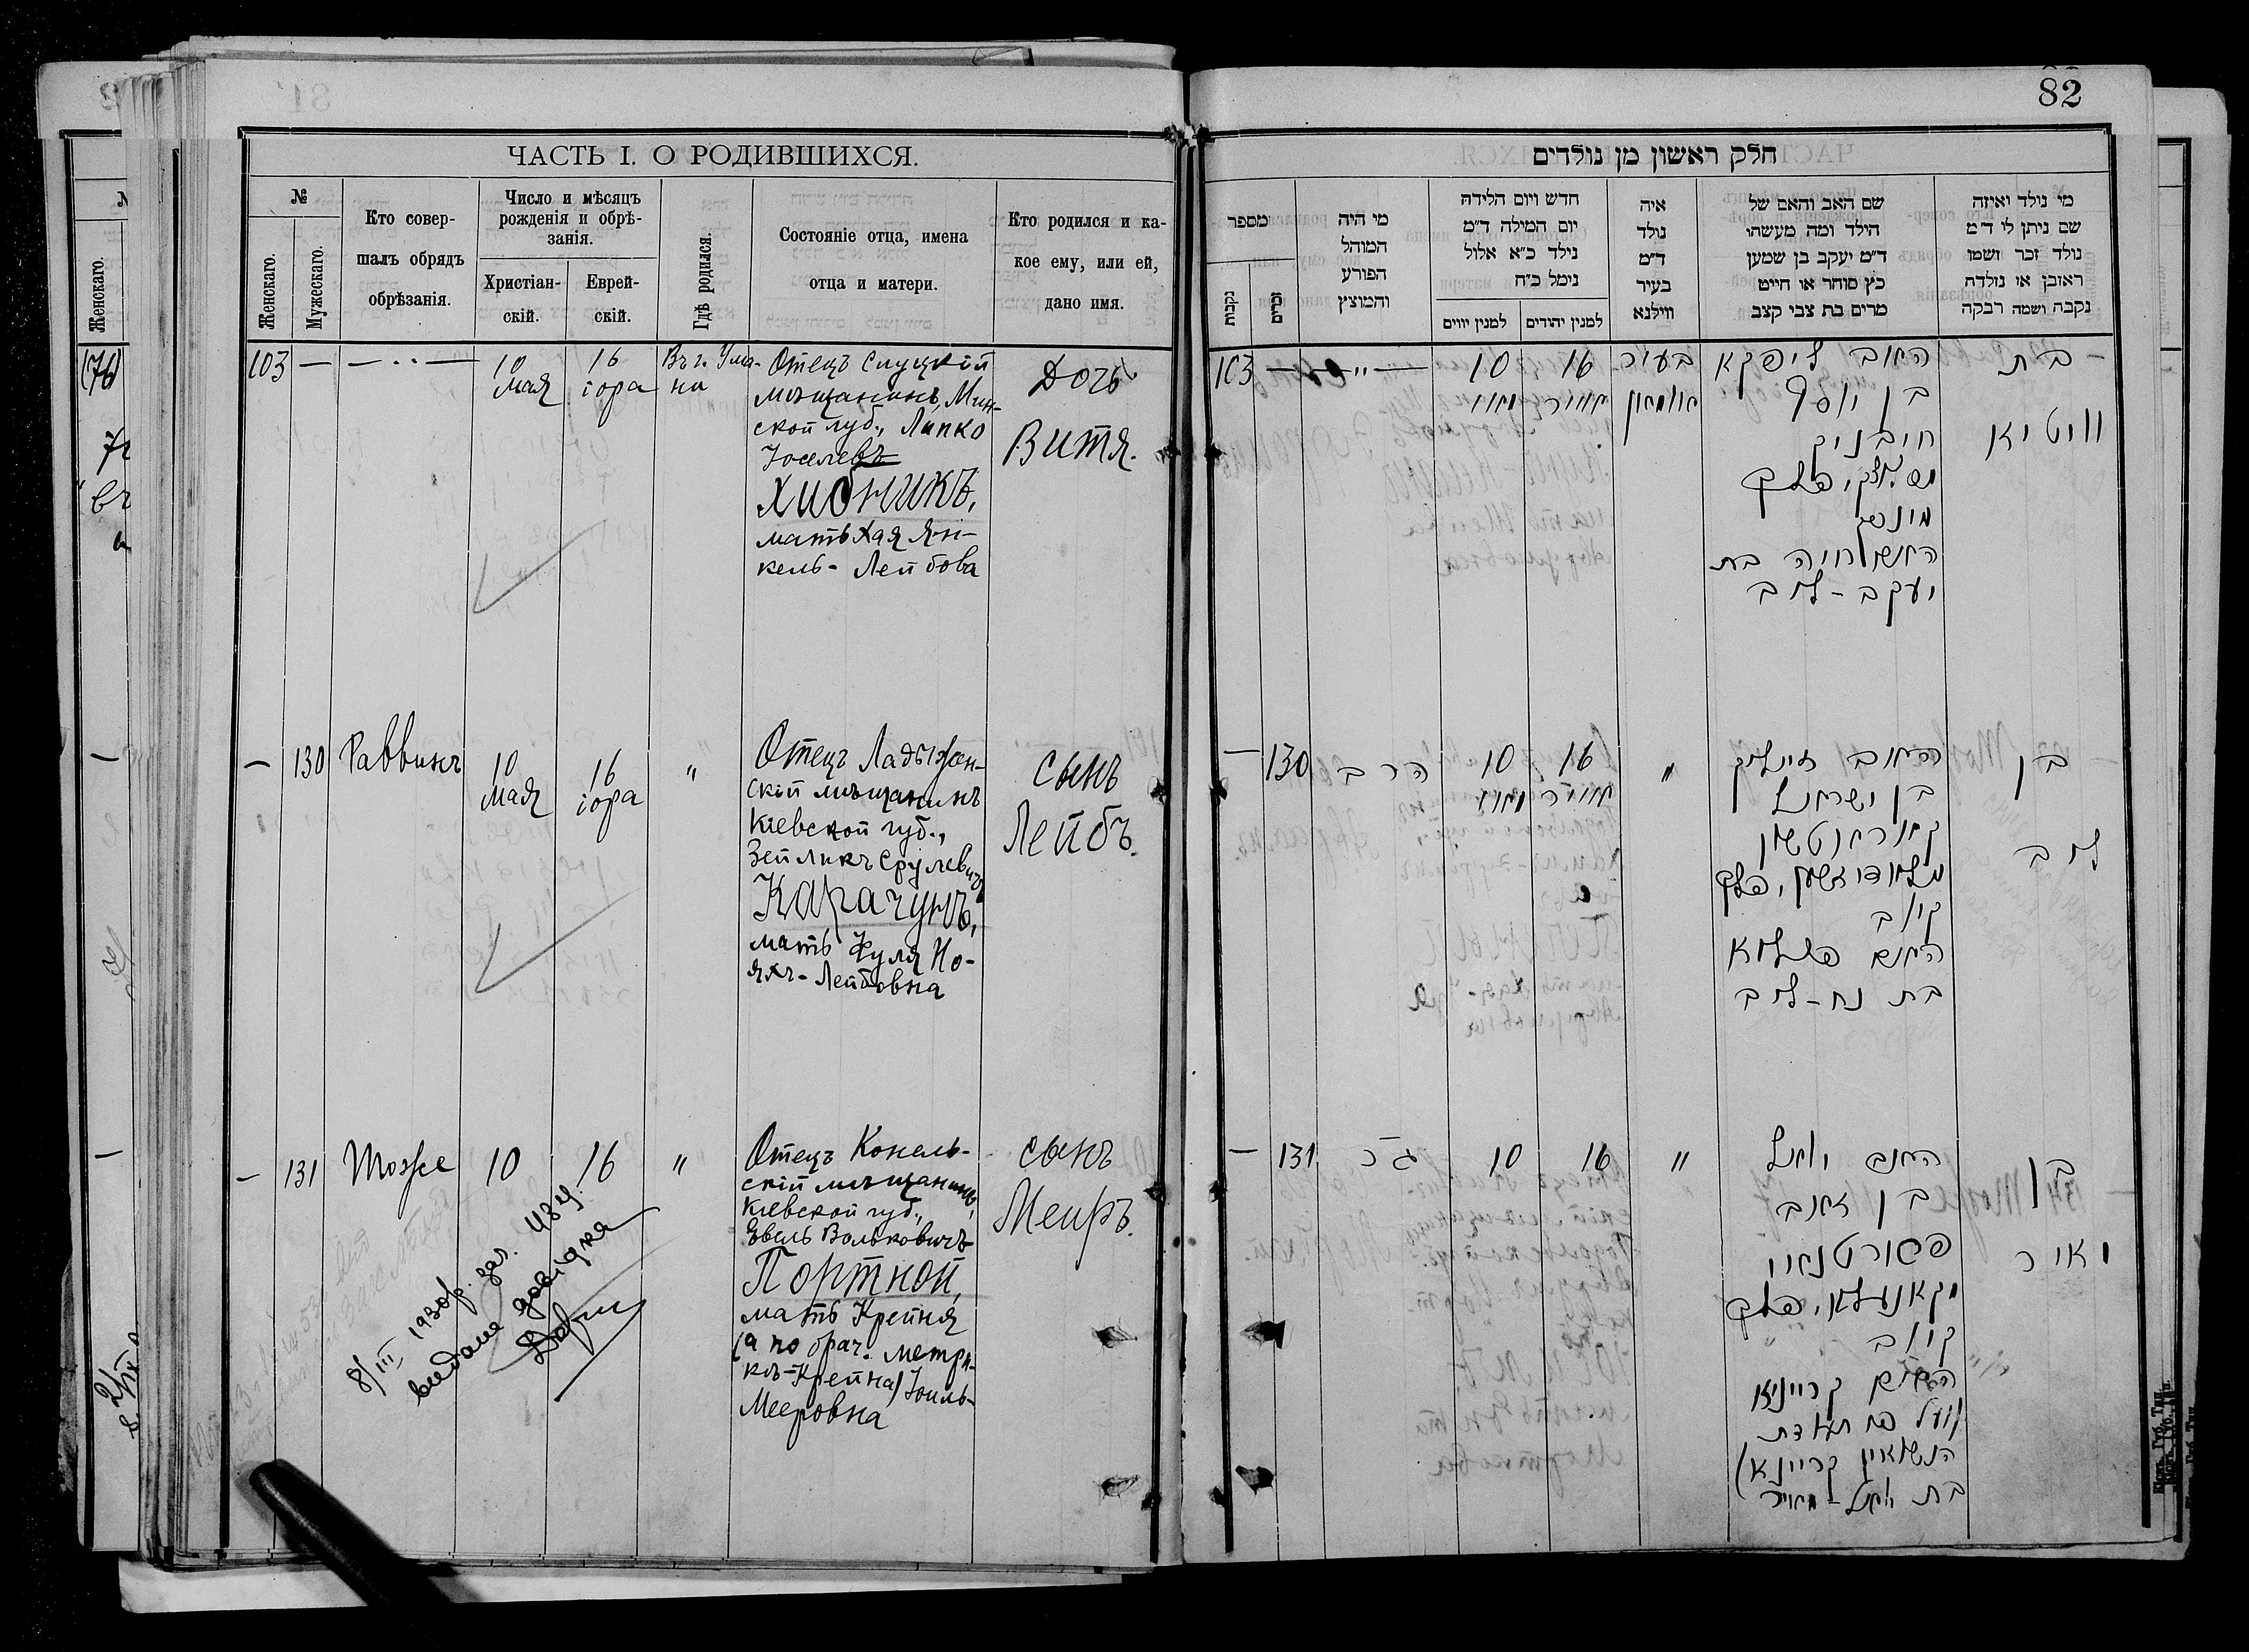 82
ЧАСТЬ I. О РОДИВШИХСЯ.
№
Женскаго.
Мужескаго.
Кто совер-
шалъ обрядъ
обрѣзанія.
Число и мѣсяцъ
рожденія и обрѣ-
занія.
Христіан-
скій.
Еврей-
скій.
Гдѣ родился.
Состояніе отца, имена
отца и матери.
Кто родился и ка-
кое ему, или ей,
дано имя.
103
10
Мая
16
іора
Въ г. Ума-
ни
Отецъ Слуцкій
мѣщанинъ, Мин-
ской губ., Липко
Іоселевъ
Хибникъ,
мать Хая Ян-
кель-Лейбова
Дочь
Витя.
130
Раввинъ
10
Мая
16
іора
"
Отецъ Ладыжин-
скій мѣщанинъ
Кіевской губ.,
Зейликъ Срулевичъ
Карачунъ,
мать Фуля Но-
яхъ-Лейбовна
сынъ
Лейбъ.
131
Тозже
10
16
"
Отецъ Конель-
скій мѣщанинъ,
Кіевской губ.,
Эвель Вольковичъ
Портной,
мать Крейня
(а по брач. метри-
кѣ-Крейна) Іоиль-
Мееровна
сынъ
Меиръ.
8/III 1930р. за г. 484
видана довідка
חלק ראשון מן נולדים
מספר
נקבות
זכרים
מי היה
המוהל
הפורע
והמוצץ
חדש ויום הלידה
יום המילה ד״מ
נילד כ״א אלול
נימל כ״ח
למנין יווים
למנין יהודים
איה
נולד
ד״מ
בעיר
ווילנא
שם האב והאם של
הילד ומה מעשהו
ד״מ יעקב בן שמען
כץ סוחר או חייט
מרים בת צבי קצב
מי נולד ואיזה
שם ניתן לי ד״מ
נולד זכר ושמו
ראובן או נולדה
נקבה ושמה רבקה
103
10
מאי
16
אייר
בעיר
אומאן
האב ליפקא
בן יוסף
חיבניק
מסלוצק, פלך
מינסק
האם חיה בת
יעקב-ליב
בת
וויטיא
130
הרב
10
מאי
16
אייר
"
האב זייליק
בן ישראל
קאראטשון
פלך
קיוב
האם
בת נח-ליב
בן
ליב
131
10
16
"
האב יואל
בן זאב
פארטנאי
פלך
קיוב
האם קרייניא
(ועל פי תעודת
הנשואין קריינא)
בת יואל-מאיר
בן
מאיר